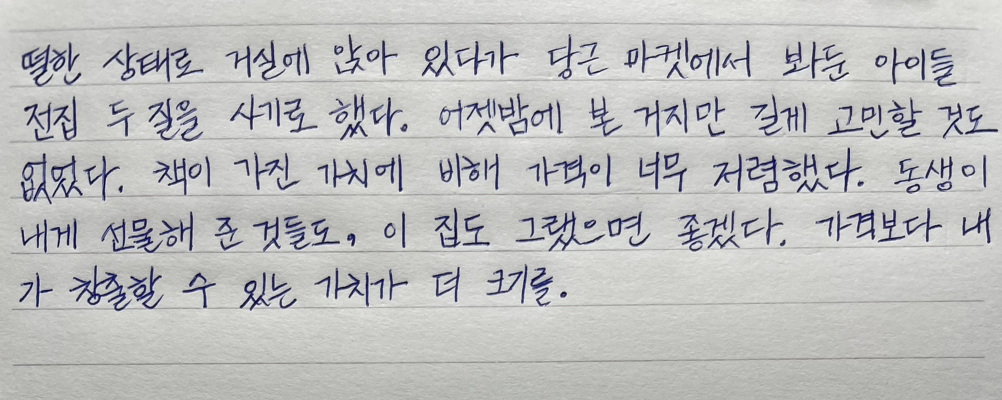 떨한 상태로 거실에 앉아 있다가 당근 마켓에서 봐둔 아이들
전집 두 질을 사기로 했다. 어젯밤에 본 거지만 길게 고민할 것도
없었다. 책이 가진 가치에 비해 가격이 너무 저렴했다. 동생이
내게 선물해 준 것들도, 이 집도 그랬으면 좋겠다. 가격보다 내
가 창출할 수 있는 가치가 더 크기를.